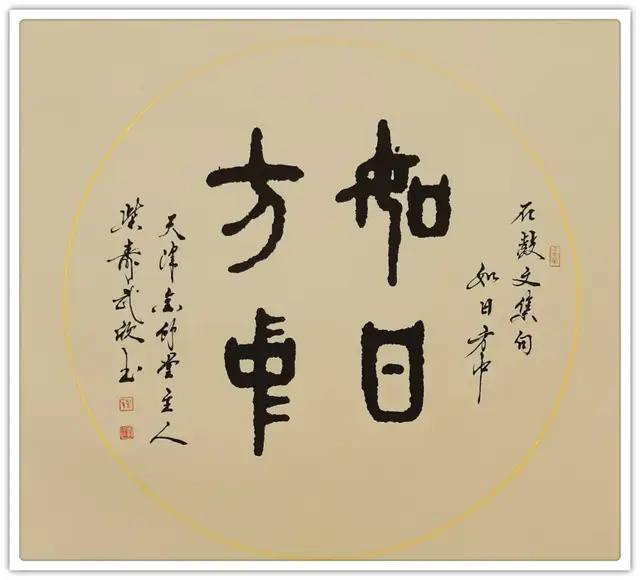 石鼓文集句
如日方中
如日
方中
天津竹堂主人
柴寿武书